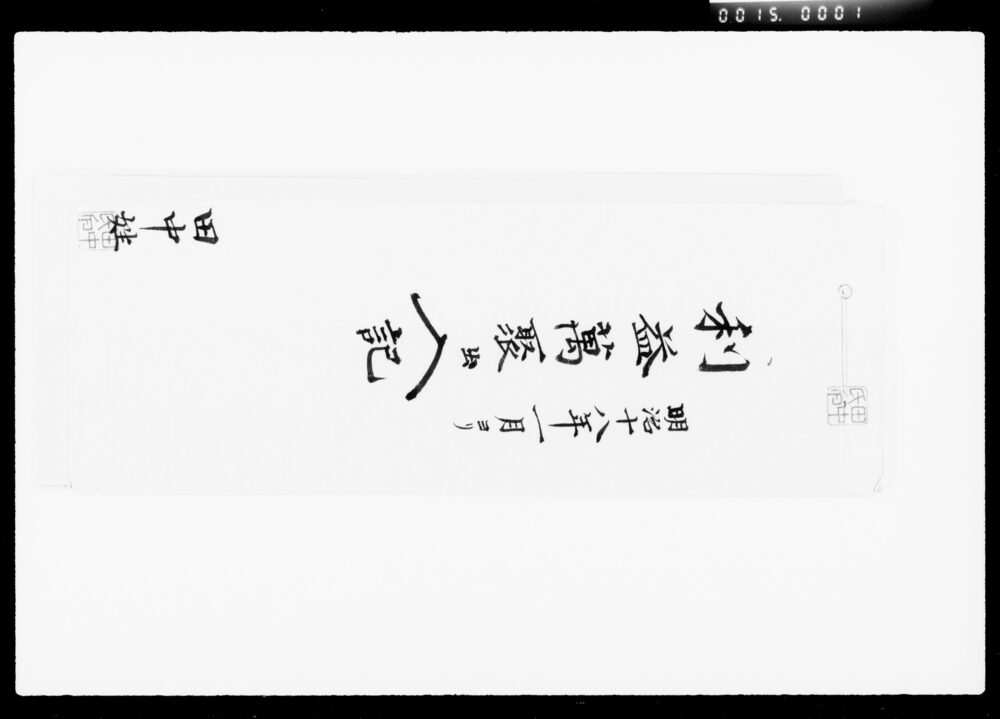 0015. 0001
明治十八年一月ヨリ
利益萬出入記
田中